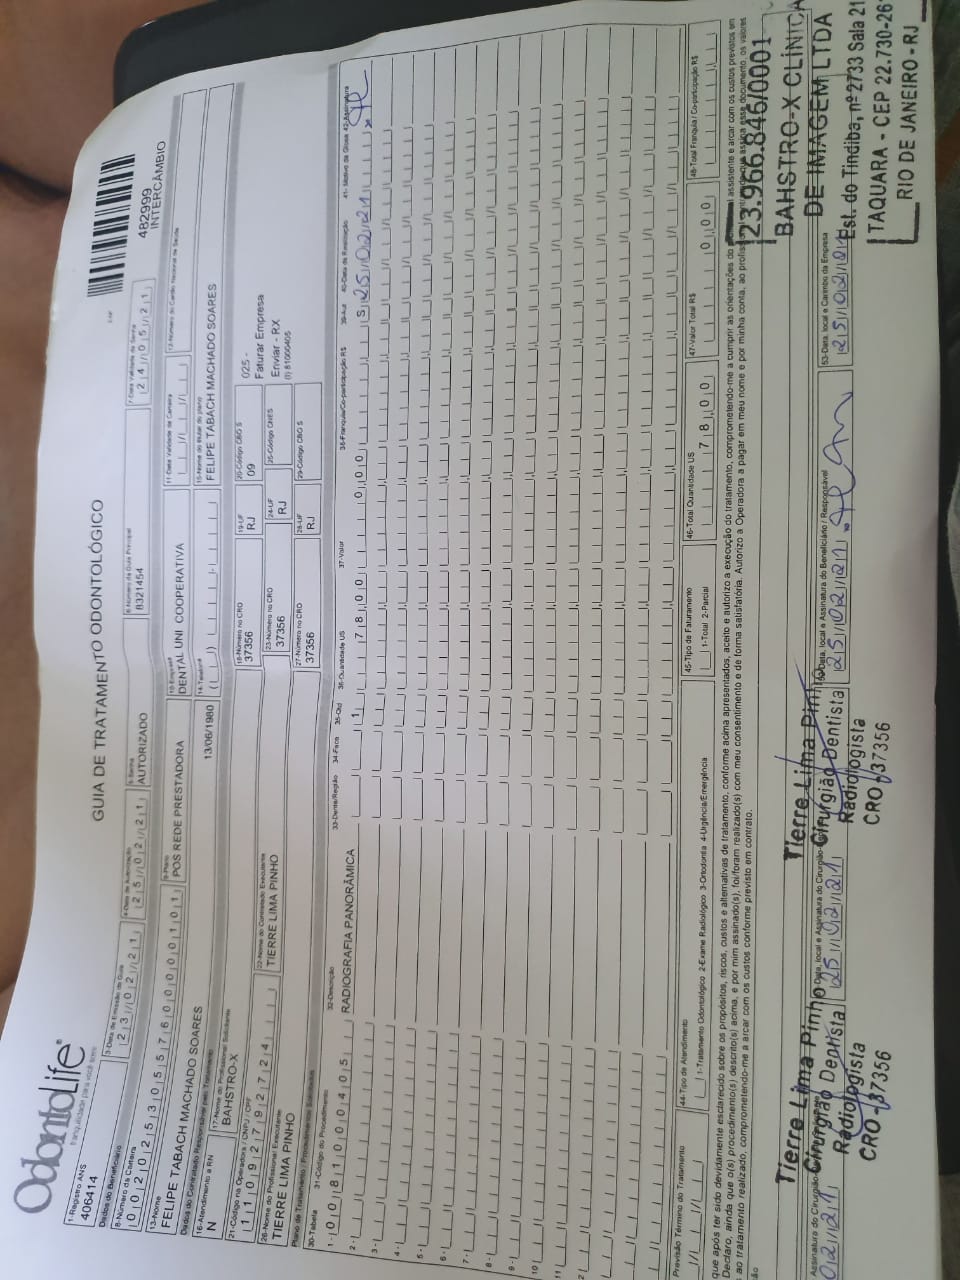 OdontoLife®
tranquilidade para você sorrir
GUIA DE TRATAMENTO ODONTOLÓGICO
482999
INTERCÂMBIO
1-Registro ANS
406414
3-Data de Emissão da Guia
23/02/21
4-Data de Autorização
25/02/21
5-Senha
AUTORIZADO
6-Número da Guia Principal
8321454
7-Data Validade da Senha
24/05/21
Dados do Beneficiário
8-Número da Carteira
9-Plano
POS REDE PRESTADORA
10-Empresa
DENTAL UNI COOPERATIVA
11-Data Validade da Carteira
12-Número do Cartão Nacional de Saúde
13-Nome
FELIPE TABACH MACHADO SOARES
13/06/1980
14-Telefone
15-Nome do titular do plano
FELIPE TABACH MACHADO SOARES
Dados do Contratado Responsável pelo Tratamento
16-Atendimento a RN
N
17-Nome do Profissional Solicitante
BAHSTRO-X
18-Número no CRO
37356
19-UF
RJ
20-Código CBO S
09
025 -
Faturar Empresa
Enviar - RX
(I) 81000405
21-Código na Operadora / CNPJ / CPF
11092792724
22-Nome do Contratado Executante
TIERRE LIMA PINHO
23-Número no CRO
37356
24-UF
RJ
25-Código CNES
26-Nome do Profissional Executante
TIERRE LIMA PINHO
27-Número no CRO
37356
28-UF
RJ
29-Código CBO S
Plano de Tratamento / Procedimentos Solicitados
30-Tabela 31-Código do Procedimento 32-Descrição 33-Dente/Região 34-Face 35-Qtd 36-Quantidade US 37-Valor 38-Franquia/Co-participação R$ 39-Aut 40-Data de Realização 41-Motivo da Glosa 42-Assinatura
1- 00 81000405 RADIOGRAFIA PANORÂMICA 1 78,00 0,00 S 25/02/21
2 -
3 -
4 -
5 -
6 -
7 -
8 -
9 -
10
11
Previsão Término do Tratamento
44-Tipo de Atendimento
1-Tratamento Odontológico 2-Exame Radiológico 3-Ortodontia 4-Urgência/Emergência
45-Tipo de Faturamento
1-Total 2-Parcial
46-Total Quantidade US
78,00
47-Valor Total R$
0,00
48-Total Franquia / Co-participação R$
que após ter sido devidamente esclarecido sobre os propósitos, riscos, custos e alternativas de tratamento, conforme acima apresentados, aceito e autorizo a execução do tratamento, comprometendo-me a cumprir as orientações do assistente e arcar com os custos previstos em
Declaro, ainda que o(s) procedimento(s) descrito(s) acima, e por mim assinado(s), foi/foram realizado(s) com meu consentimento e de forma satisfatória. Autorizo a Operadora a pagar em meu nome e por minha conta, ao
ao tratamento realizado, comprometendo-me a arcar com os custos conforme previsto em contrato.
Tierre Lima Pinho
Cirurgião Dentista
Radiologista
CRO-37356
Tierre Lima Pinho
Cirurgião Dentista
Radiologista
CRO-37356
02/21
25/02/21
Data, local e Assinatura do Beneficiário / Responsável
25/02/21
53-Data, local e Carimbo da Empresa
25/02/21
23.966.846/0001
BAHSTRO-X CLÍNICA
DE IMAGEM LTDA
Est. do Tindiba, nº 2733 Sala 21
TAQUARA - CEP 22.730-26
RIO DE JANEIRO - RJ